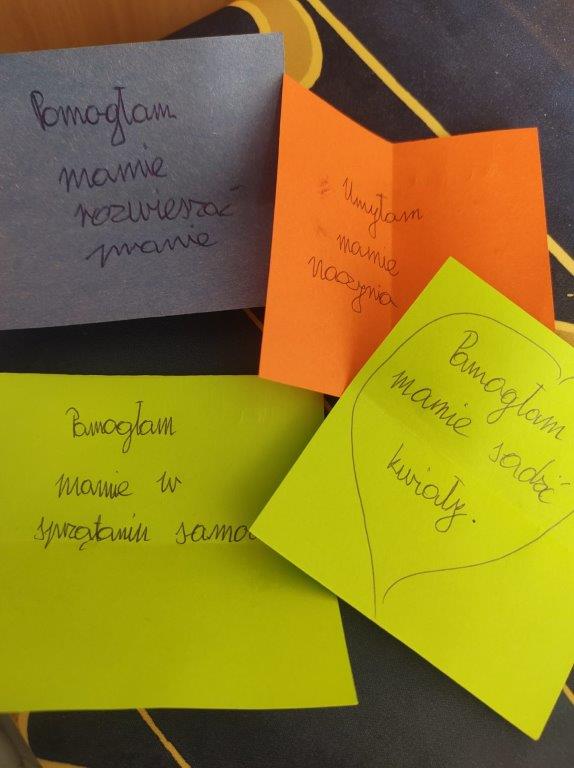 Pomogłam
mamie
rozwieszać
pranie
Umyłam
mamie
Naczynia
Pomogłam
mamie sadzić
kwiaty.
Pomogłam
mamie w
sprzątaniu